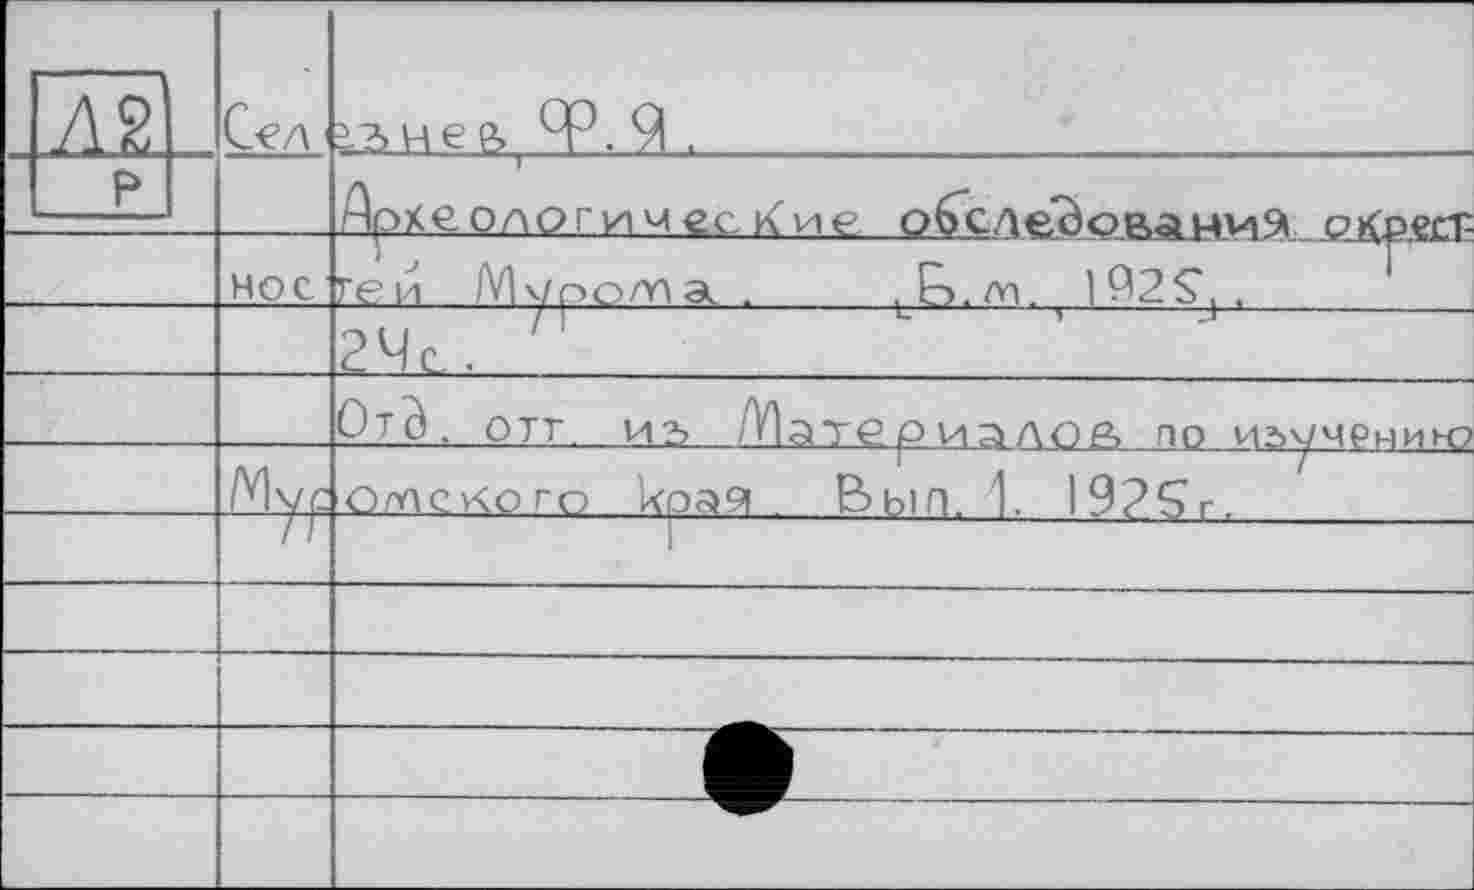 Д2
Р
Селезнев, Ф.Я.
Археологические обследования окрест-
ностей Мурома. [Б.м., 1925].
24с.
Отд. отт. из Материалов по изучению
Муромского края. Вып. 1. 1925г.